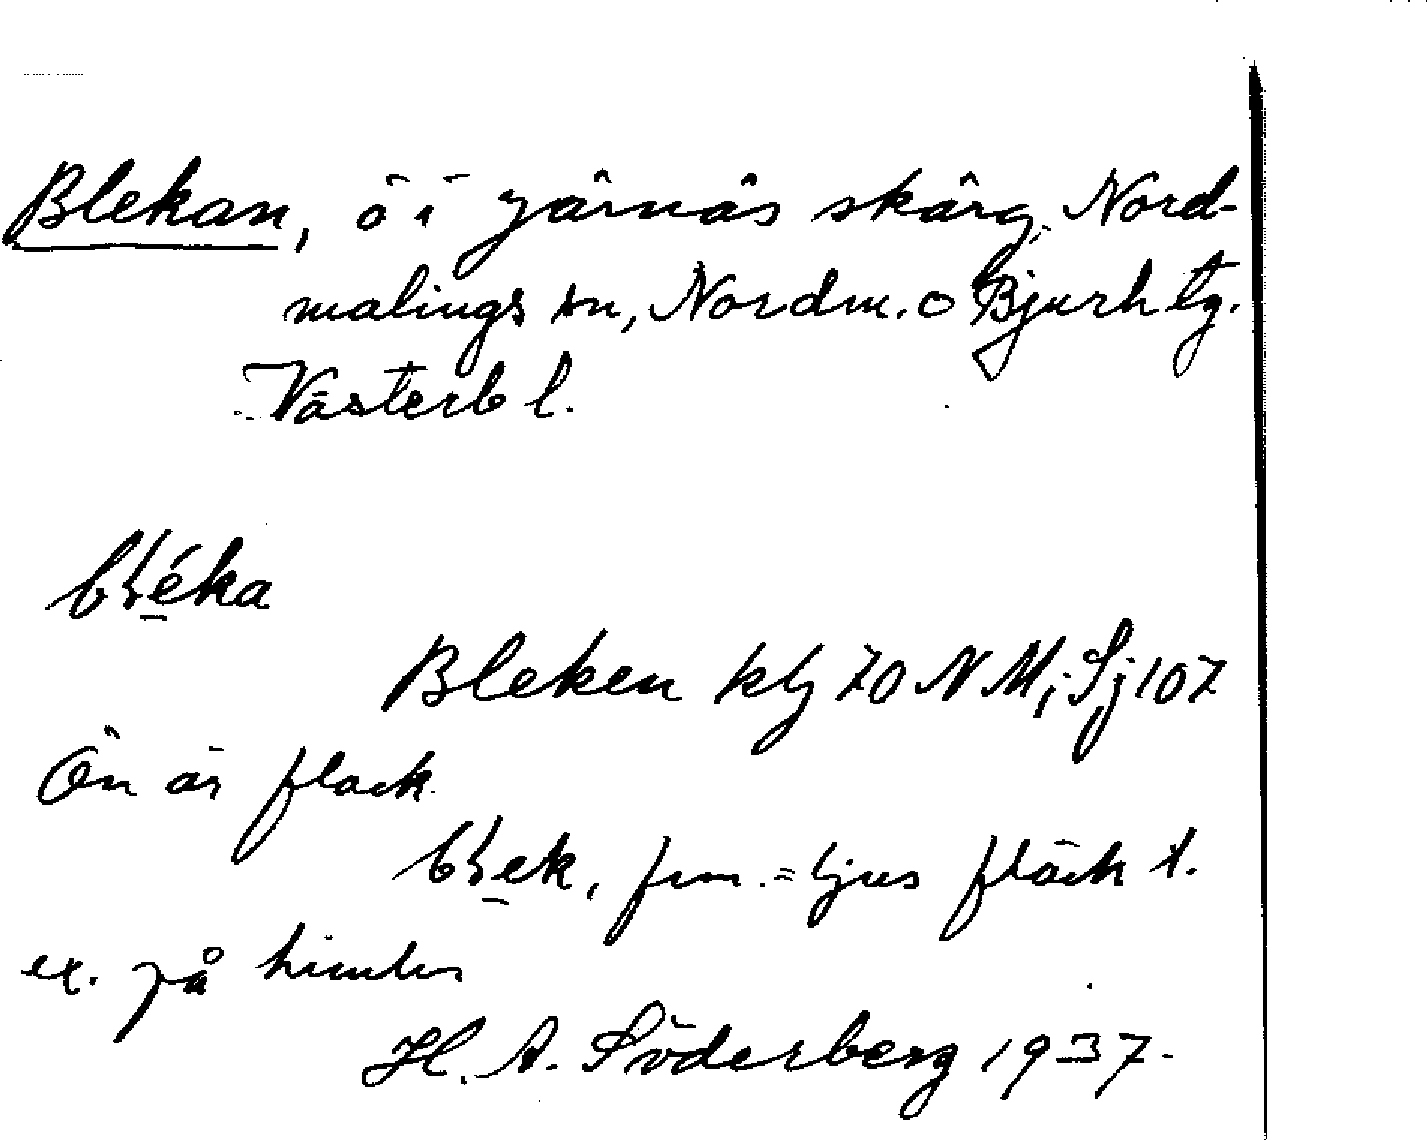 Blekan, ö i Järnäs skärg, Nord-
malings sn, Nordm. o Bjurh tg.
Västerb l.
bḷéka
Bleken kbl 70 NM; Sj 107
Ön är flack.
bḷek, fm. = ljus fläck t.
ex. på himlen
H. A. Söderberg 1937.